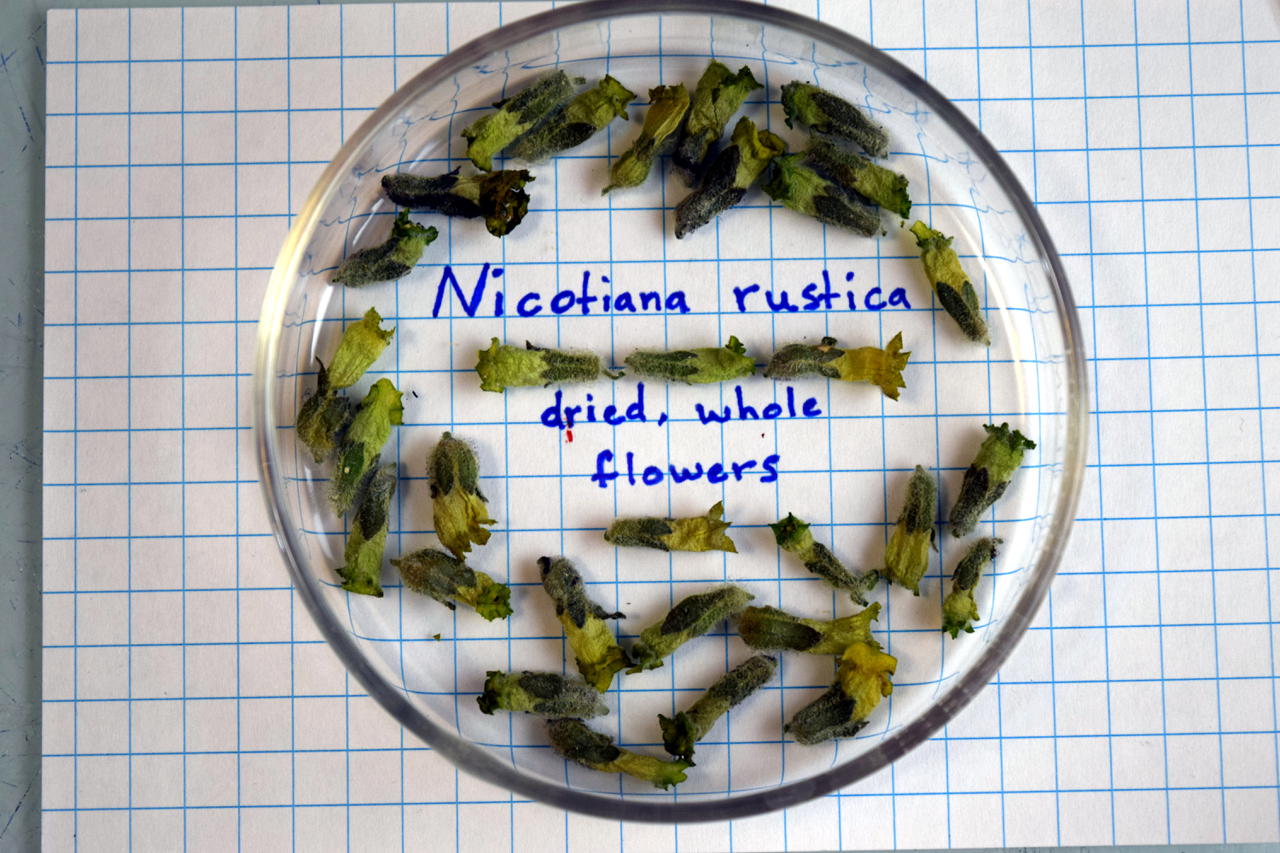 Nicotiana rustica
dried, whole
flowers